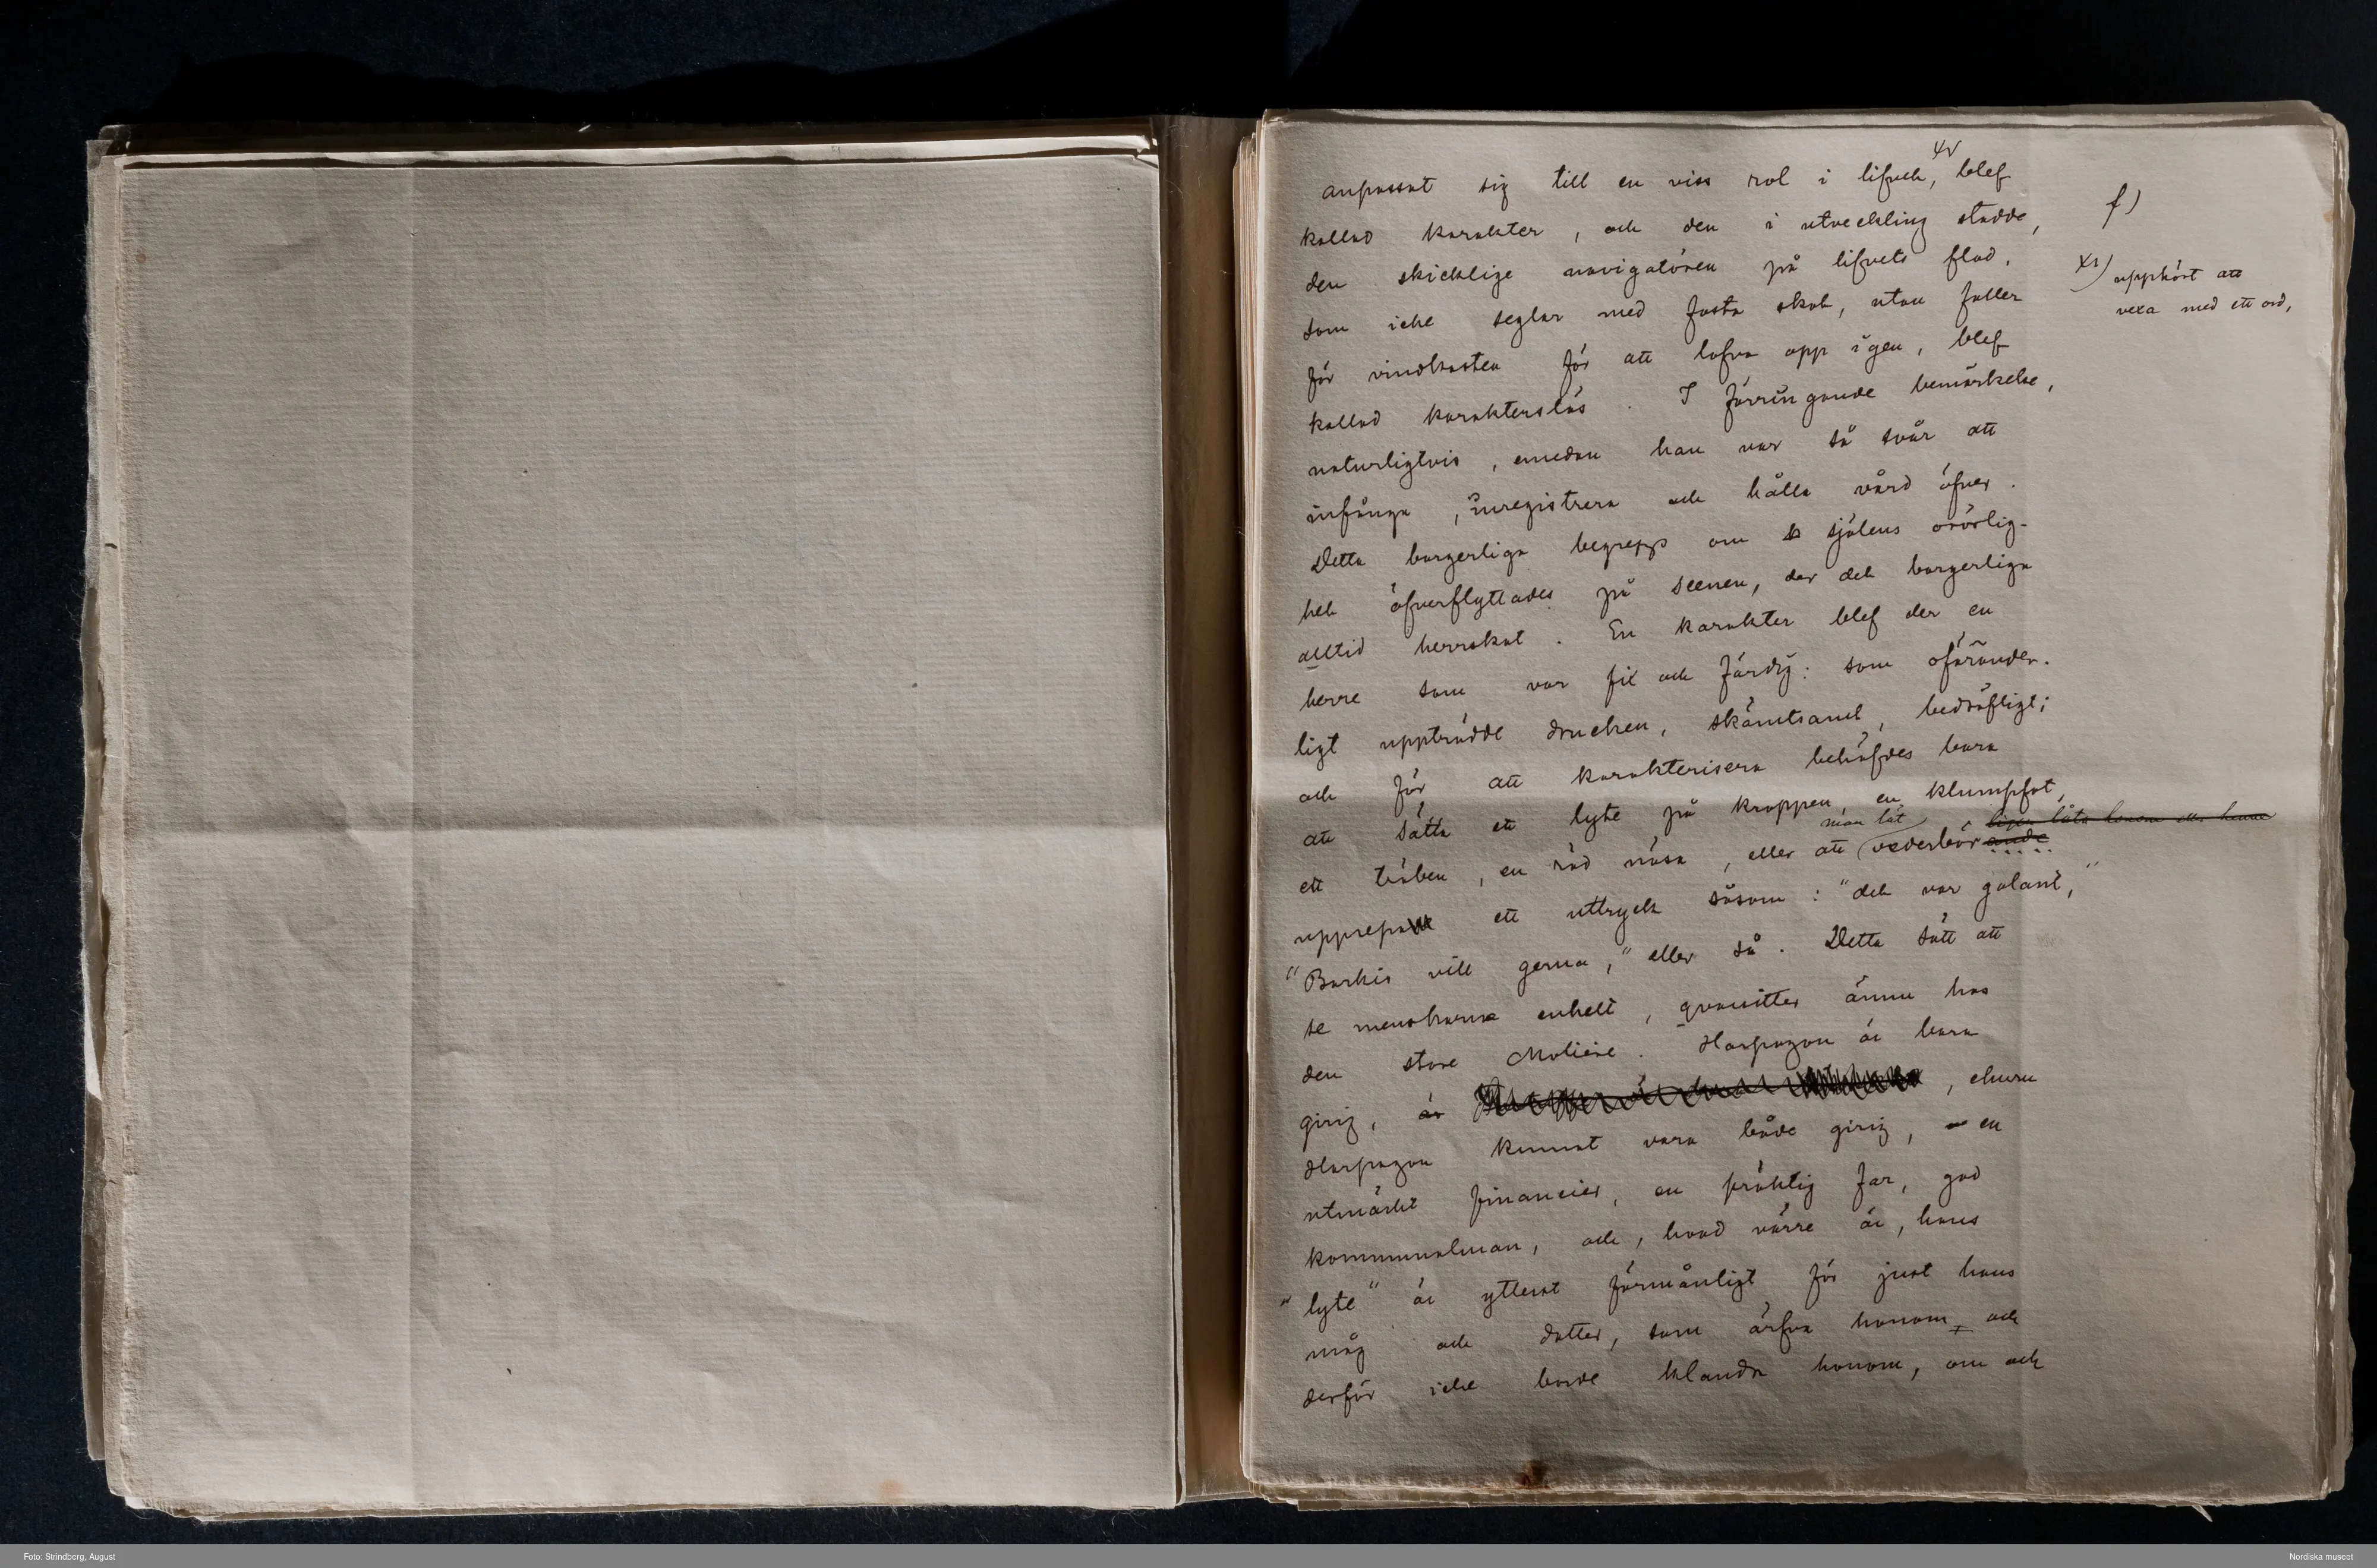 anpassat sig till en viss rol i lifvet, blef
kallad karakter, och den i utveckling stadde,
den skicklige navigatören på lifvets flod,
som icke seglar med fasta skot, utan faller
för vindkasten för att lofva opp igen, blef
kallad karakterslös. I förringande bemärkelse,
naturligtvis, emedan han var så svår att
infånga, inregistrera och hålla vård öfver.
Detta borgerliga begrepp om själens orörlig-
het öfverflyttades på scenen, der det borgerliga
alltid herrskat. En karakter blef der en
herre som var fix och färdig: som oförander-
ligt uppträdde drucken, skämtsamt, bedröfligt;
och för att karakterisera behöfdes bara
att sätta ett lyte på kroppen, en klumpfot,
man lät
ett träben, en röd näsa, eller att vederbörande
upprepa ett uttryck såsom: "det var galant,"
"Barkis vill gerna," eller så. Detta sätt att
se menskorna enkelt, qvarsitter ännu hos
den store Molière. Harpagon är bara
girig, är , ehuru
Harpagon kunnat vara både girig, en
utmärkt financier, en präktig far, god
kommunalman, och, hvad värre är, hans
"lyte" är ytterst förmånligt för just hans
måg och dotter, som ärfva honom, och
derför icke borde klandra honom, om och
f)
upphört att
vexa med ett ord,
Foto: Strindberg, August
Nordiska museet